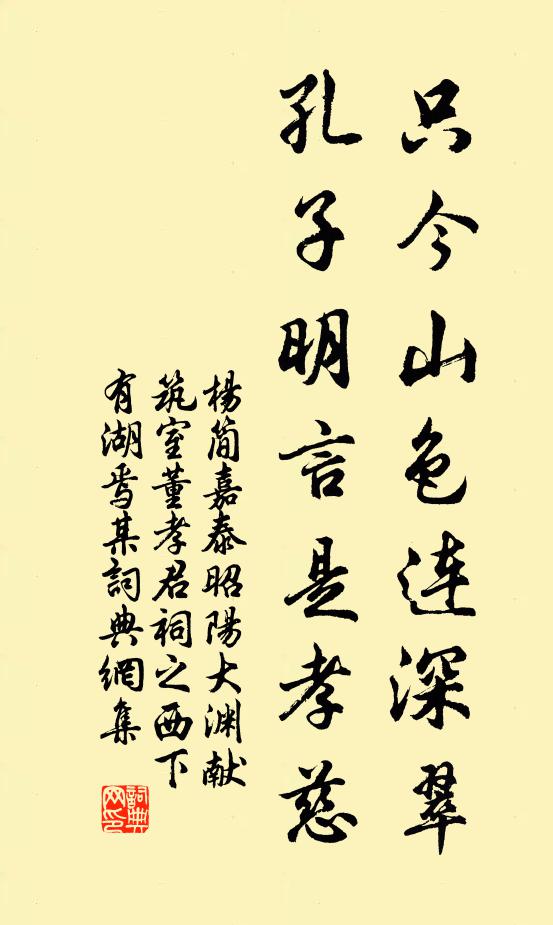 只今山色连深翠
孔子明言是孝慈
楊简嘉泰昭陽大渊献
筑室董孝君祠之西下
有湖焉某詞典網集
詞典网印